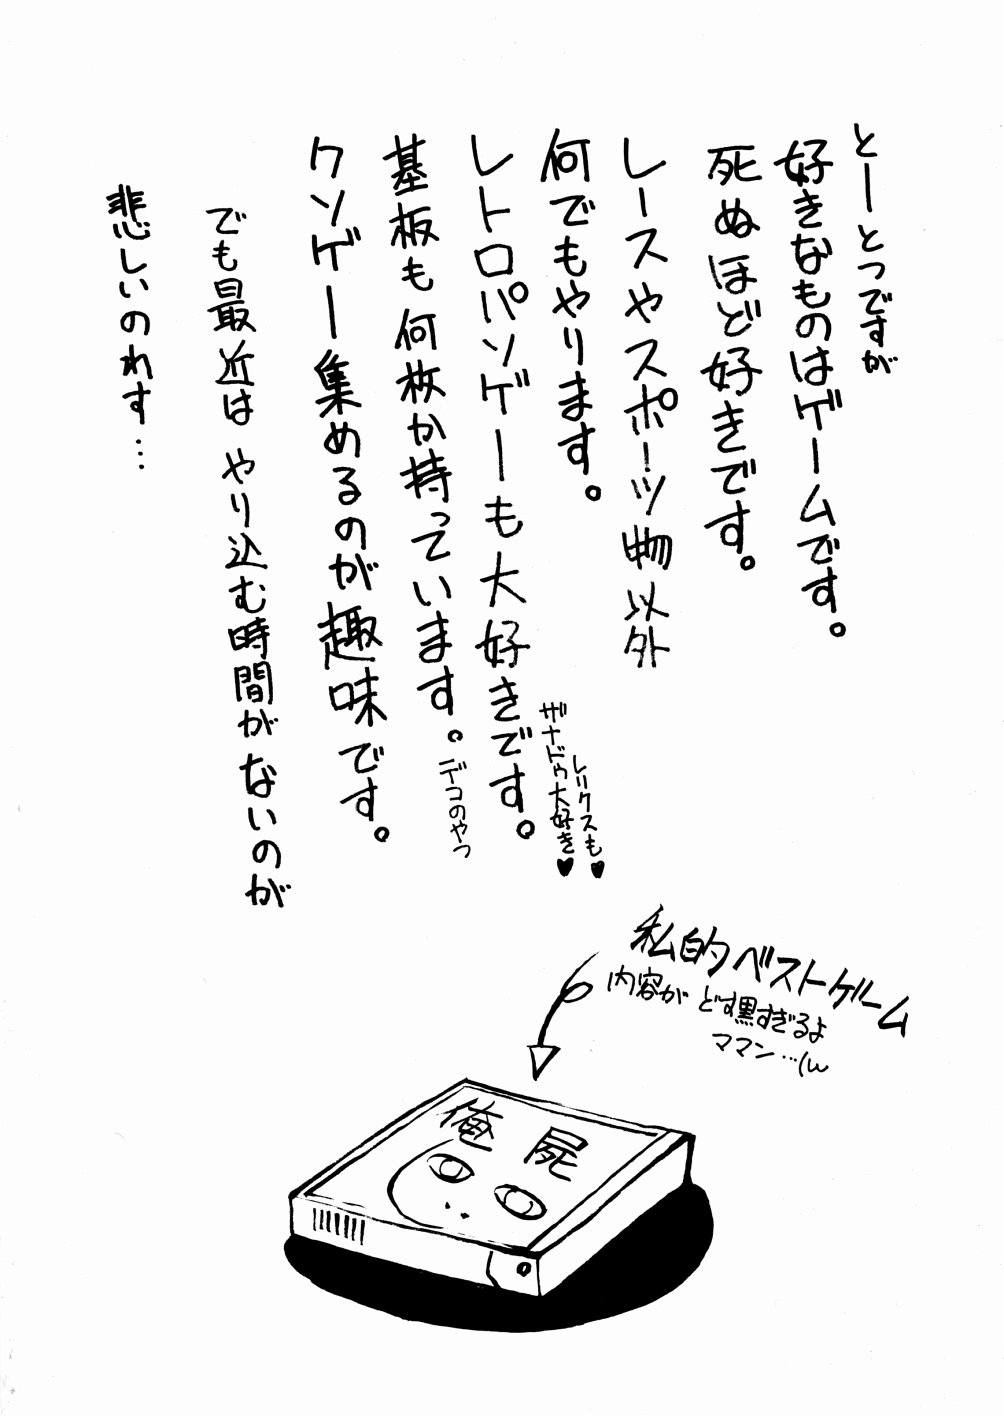 とーとつですが
好きなものはゲームです。
死ぬほど好きです。
レースやスポーツ物以外
何でもやります。
レトロパソゲーも大好きです。
レリクスも♥
ザナドゥ大好き♥
基板も何枚か持っています。
デコのやつ
クソゲー集めるのが趣味です。
でも最近はやり込む時間がないのが
悲しいのれす…
私的ベストゲーム
内容がどす黒すぎるよ
ママン…
俺屍